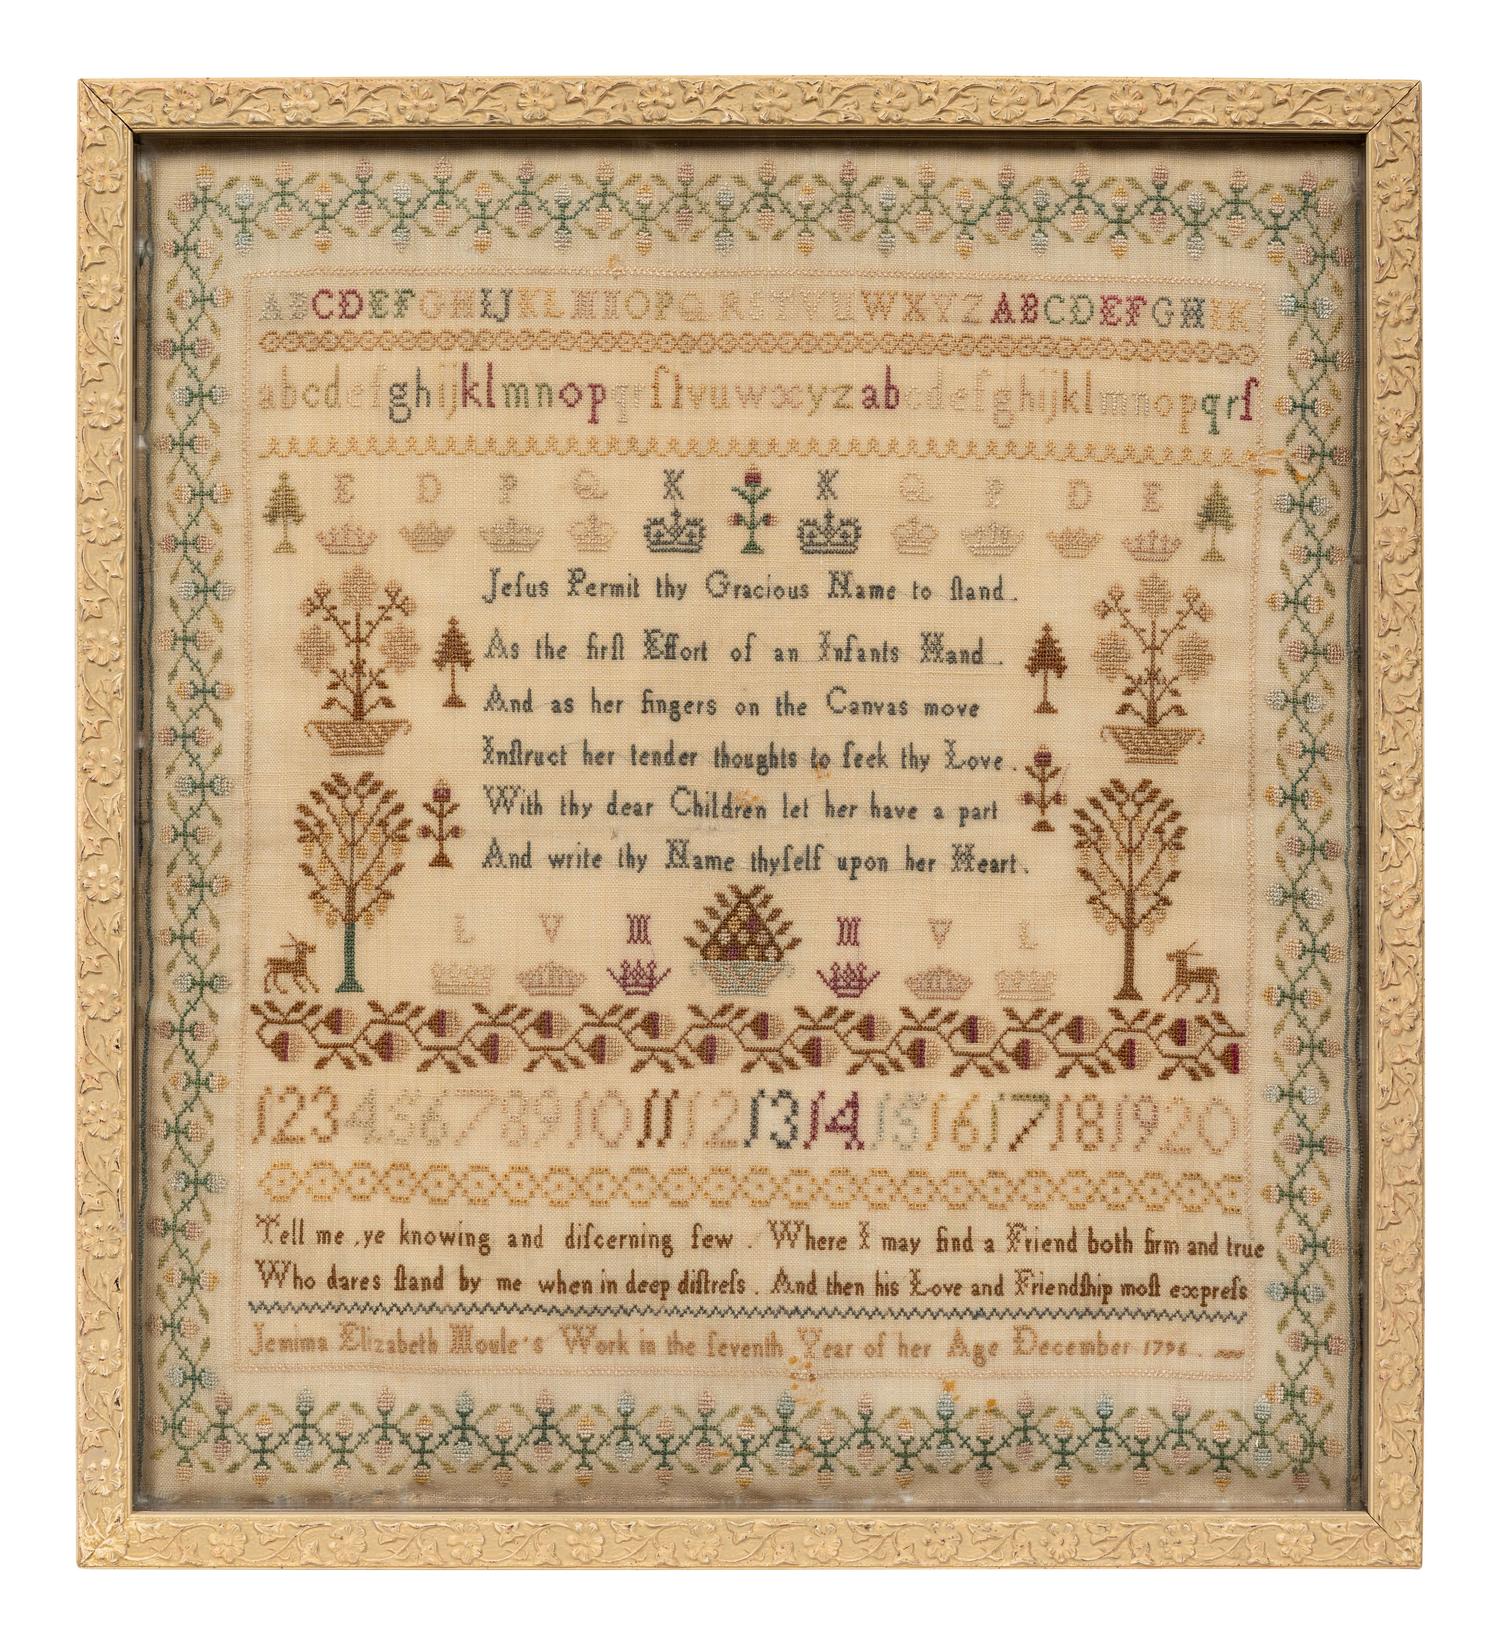 ABCDEFGHIJKLMNOPQRSTVUWXYZABCDEFGHIK
abcdefghijklmnopqrſtvuwxyzabcdefghijklmnopqrſ
E D P Q K K Q P D E
Jeſus Permit thy Gracious Name to ſtand.
As the firſt Effort of an Infants Hand.
And as her fingers on the Canvas move
Inſtruct her tender thoughts to ſeek thy Love.
With thy dear Children let her have a part
And write thy Name thyſelf upon her Heart.
L V M M V L
1234567891011121314151617181920
Tell me, ye knowing and diſcerning few. Where I may find a Friend both firm and true
Who dares ſtand by me when in deep diſtreſs. And then his Love and Friendſhip moſt expreſs
Jemima Elizabeth Moule's Work in the ſeventh Year of her Age December 1796.